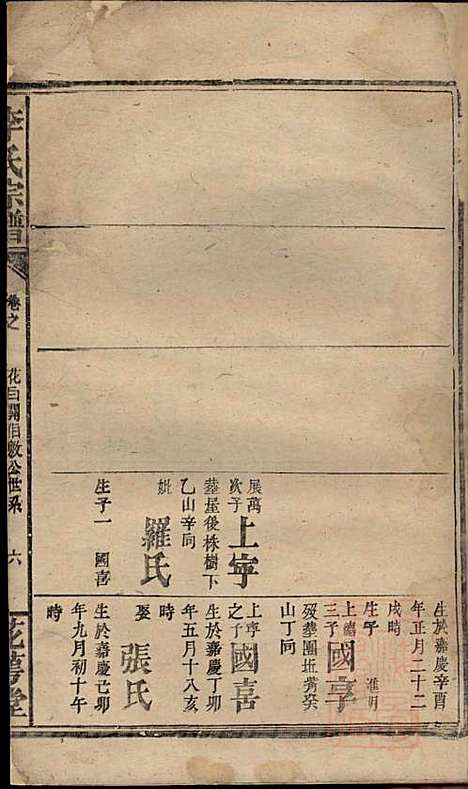 李氏宗譜
卷之
六
展萬
次子
上寧
葬屋後株樹下
乙山辛向
妣
羅氏
生子一 國喜
生於嘉慶辛酉
年正月二十二
戌時
生子 進明
上德
三子
國亨
歿葬團坵嘴癸
山丁向
上寧
之子
國喜
生於嘉慶丁卯
年五月十八亥
時
娶
張氏
生於嘉慶己卯
年九月初十午
時
花萼堂